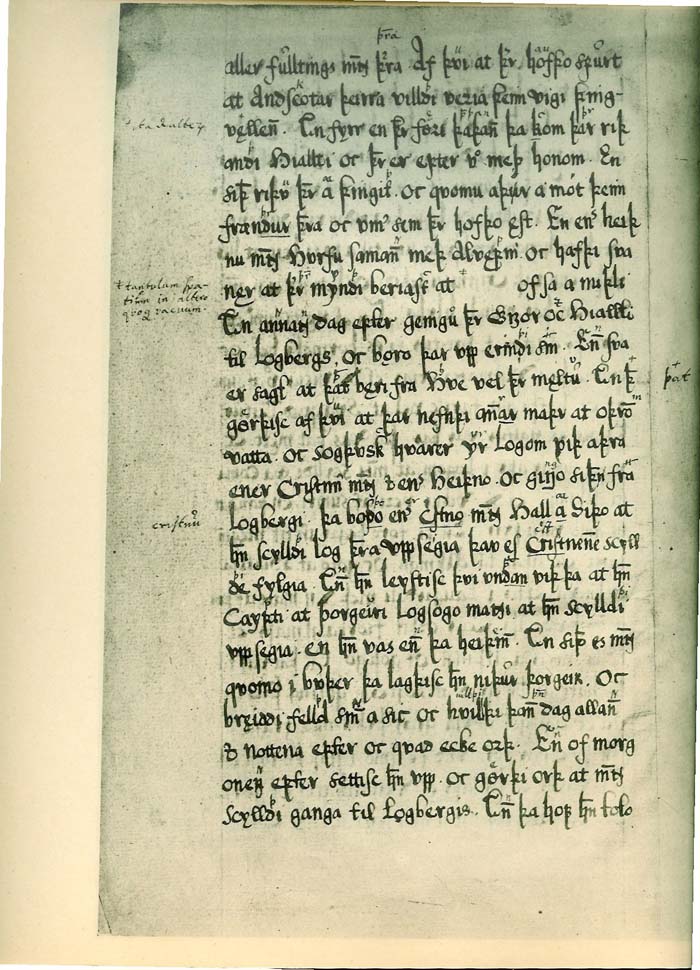 þra
aller fulltings mɴ þra Af þvi at þr hofþo spurt
at Andscotar þeirra villdi veria þeim vigi þing-
vollen. En fyrr en þr fori þaþan þa kom þar riþ
andi Hiallti oc þr er epter vo meþ honom. En
siþ riþu þr a þingit. oc qvomu aþur a mót þeim
frændur þra oc viner sem þr hofþo æst. En ener heiþ
nu menn Hurfu saman meþ Alvepni oc hafþi sva
ner at þr myndi beriasc at ⁺ of sa a miþli
En annan dag epter gengu þr Gizor oc Hiallti
til Logbergs. oc boro þar upp erindi sin. Enn sva
er sagt at þat bæri fra Hve vel þr mæltu. En þ
gorþisc af þvi at þar nefnþi annar maþr at oþrom
vatta. oc sogþusk hvarer yr Logom viþ aþra
ener Cristnu menn & ener Heiþno. oc gingo siþan fra
Logbergi. þa boþo ener Cristno menn Hall a Siþo at
hann scylldi log þra upp segia þau es Cristnenne scyll
de fylgia. Enn hann leystisc þvi undan viþ þa at hann
Caypti at Þorgeiri Logsogo manni at hann scylldi
upp segia. en hann vas enn þa heiþinn. En siþan es menn
qvomo i buþer þa lagþisc hann niþur Þorgeir. Oc
breiddi felld sinn a sic oc hvilþi þann dag allann
& nottena epter oc qvad ecke orþ. Enn of morg
onen epter settisc hann upp. oc gorþi orþ at menn
scylldi ganga til Logbergis. Enn þa hof hann tolo
⁺ tantulum spa-
tium in altero
quoque vacuum.
⁺ þat
cristnu